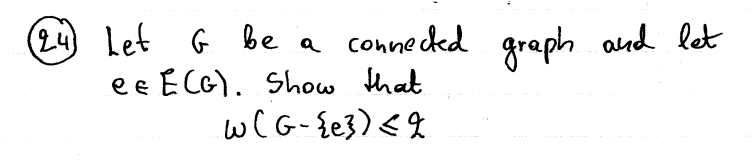 24 Let G be a connected graph and let
e ∈ E(G). Show that
ω(G-{e}) ≤ 2